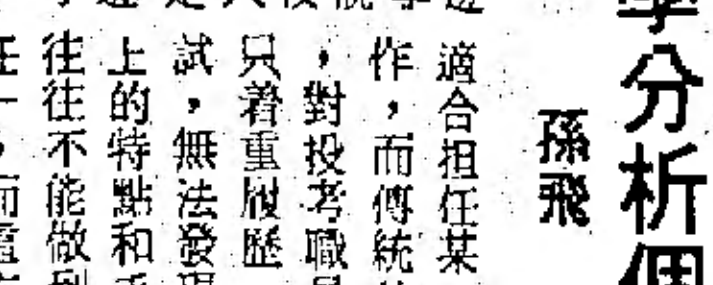 學分析個
孫飛
適合担任某
作，而傳統
，對投考職員
只着重履歷
試，無法發現
上的特點和
往往不能做到
，而